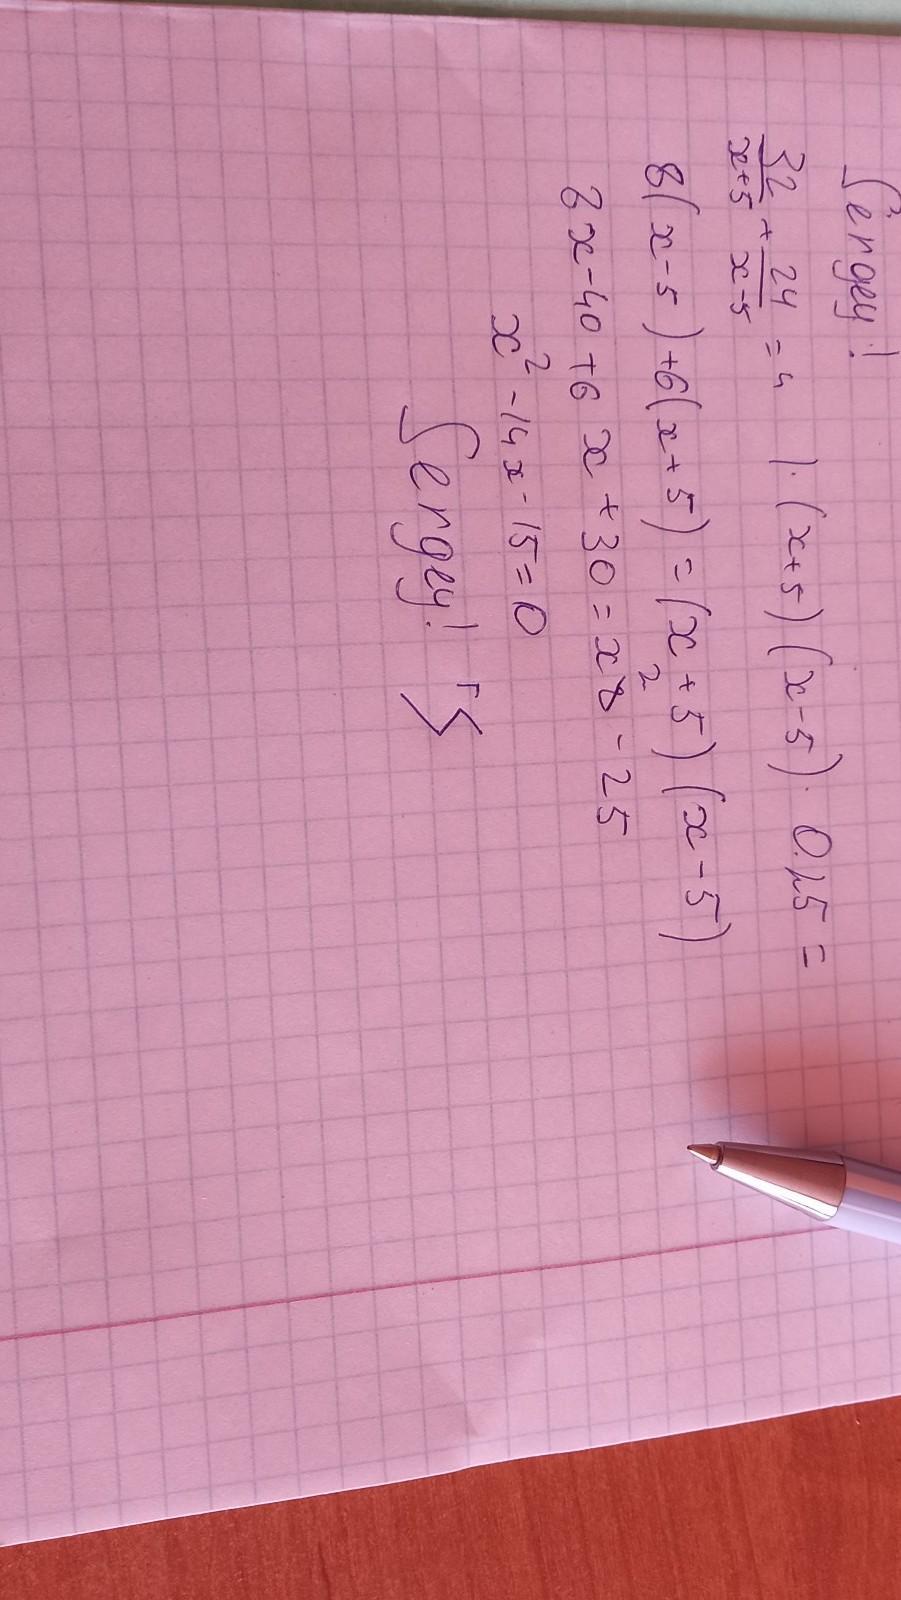 Sergey!
32/x+5 + 24/x-5 = 4 |· (x+5)(x-5) · 0.25 =
8(x-5)+6(x+5) = (x+5)(x-5)
8x-40+6x+30 = x² - 25
x² - 14x - 15 = 0
Sergey!